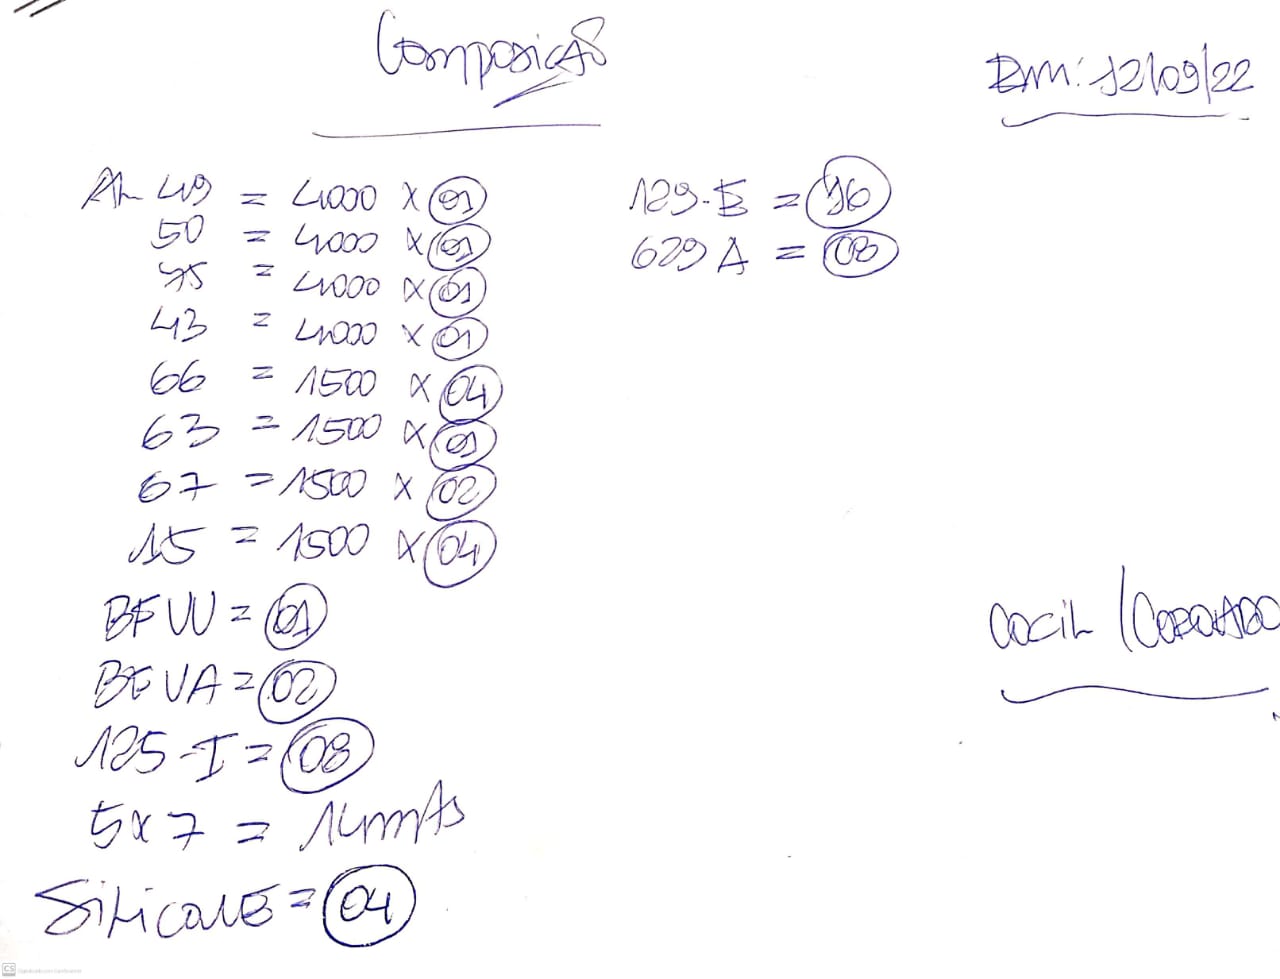 Composição
Em: 12/09/22
AL 49 = 4000 x 01
50 = 4000 x 01
75 = 4000 x 01
43 = 4000 x 01
66 = 1500 x 04
63 = 1500 x 01
67 = 1500 x 02
15 = 1500 x 04
BF VV = 01
BF VA = 02
125-I = 08
5x7 = 14mts
Silicone = 04
129-E = 16
629 A = 08
COCIL / COROADO
CS